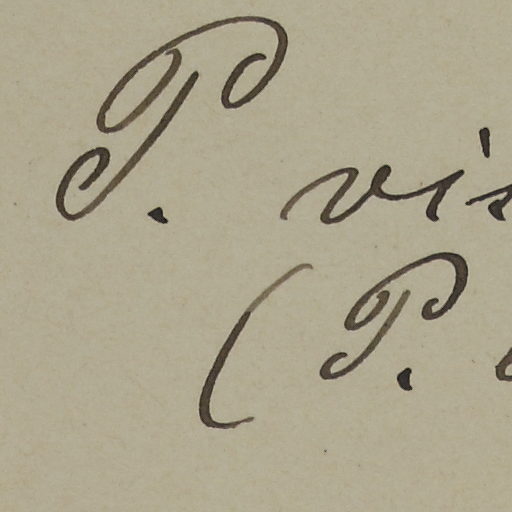 P. vis
(P.